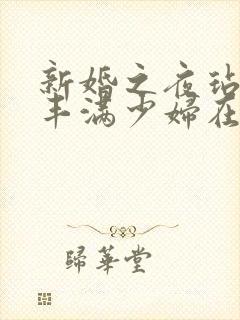 新婚之夜玷
丰满少婦在
歸華堂